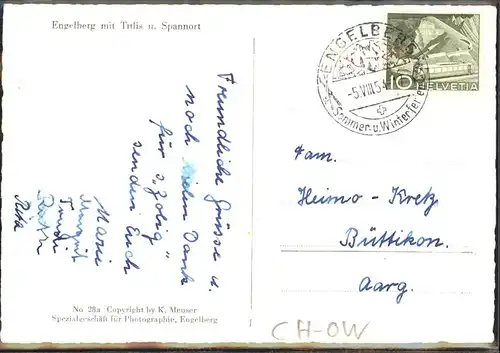 Engelberg mit Titlis u. Spannort
Freundliche Grüsse u.
noch vielen Dank
für's „Zobig“
senden Euch
Marie
Margrit
Trudi
Ruth
Rita
No 28a Copyright by K. Meuser
Spezialgeschäft für Photographie, Engelberg
ENGELBERG
-5.VIII.54
Sommer- u. Winterferien
10
HELVETIA
Fam.
Heimo-Kretz
Büttikon.
Aarg.
CH-OW